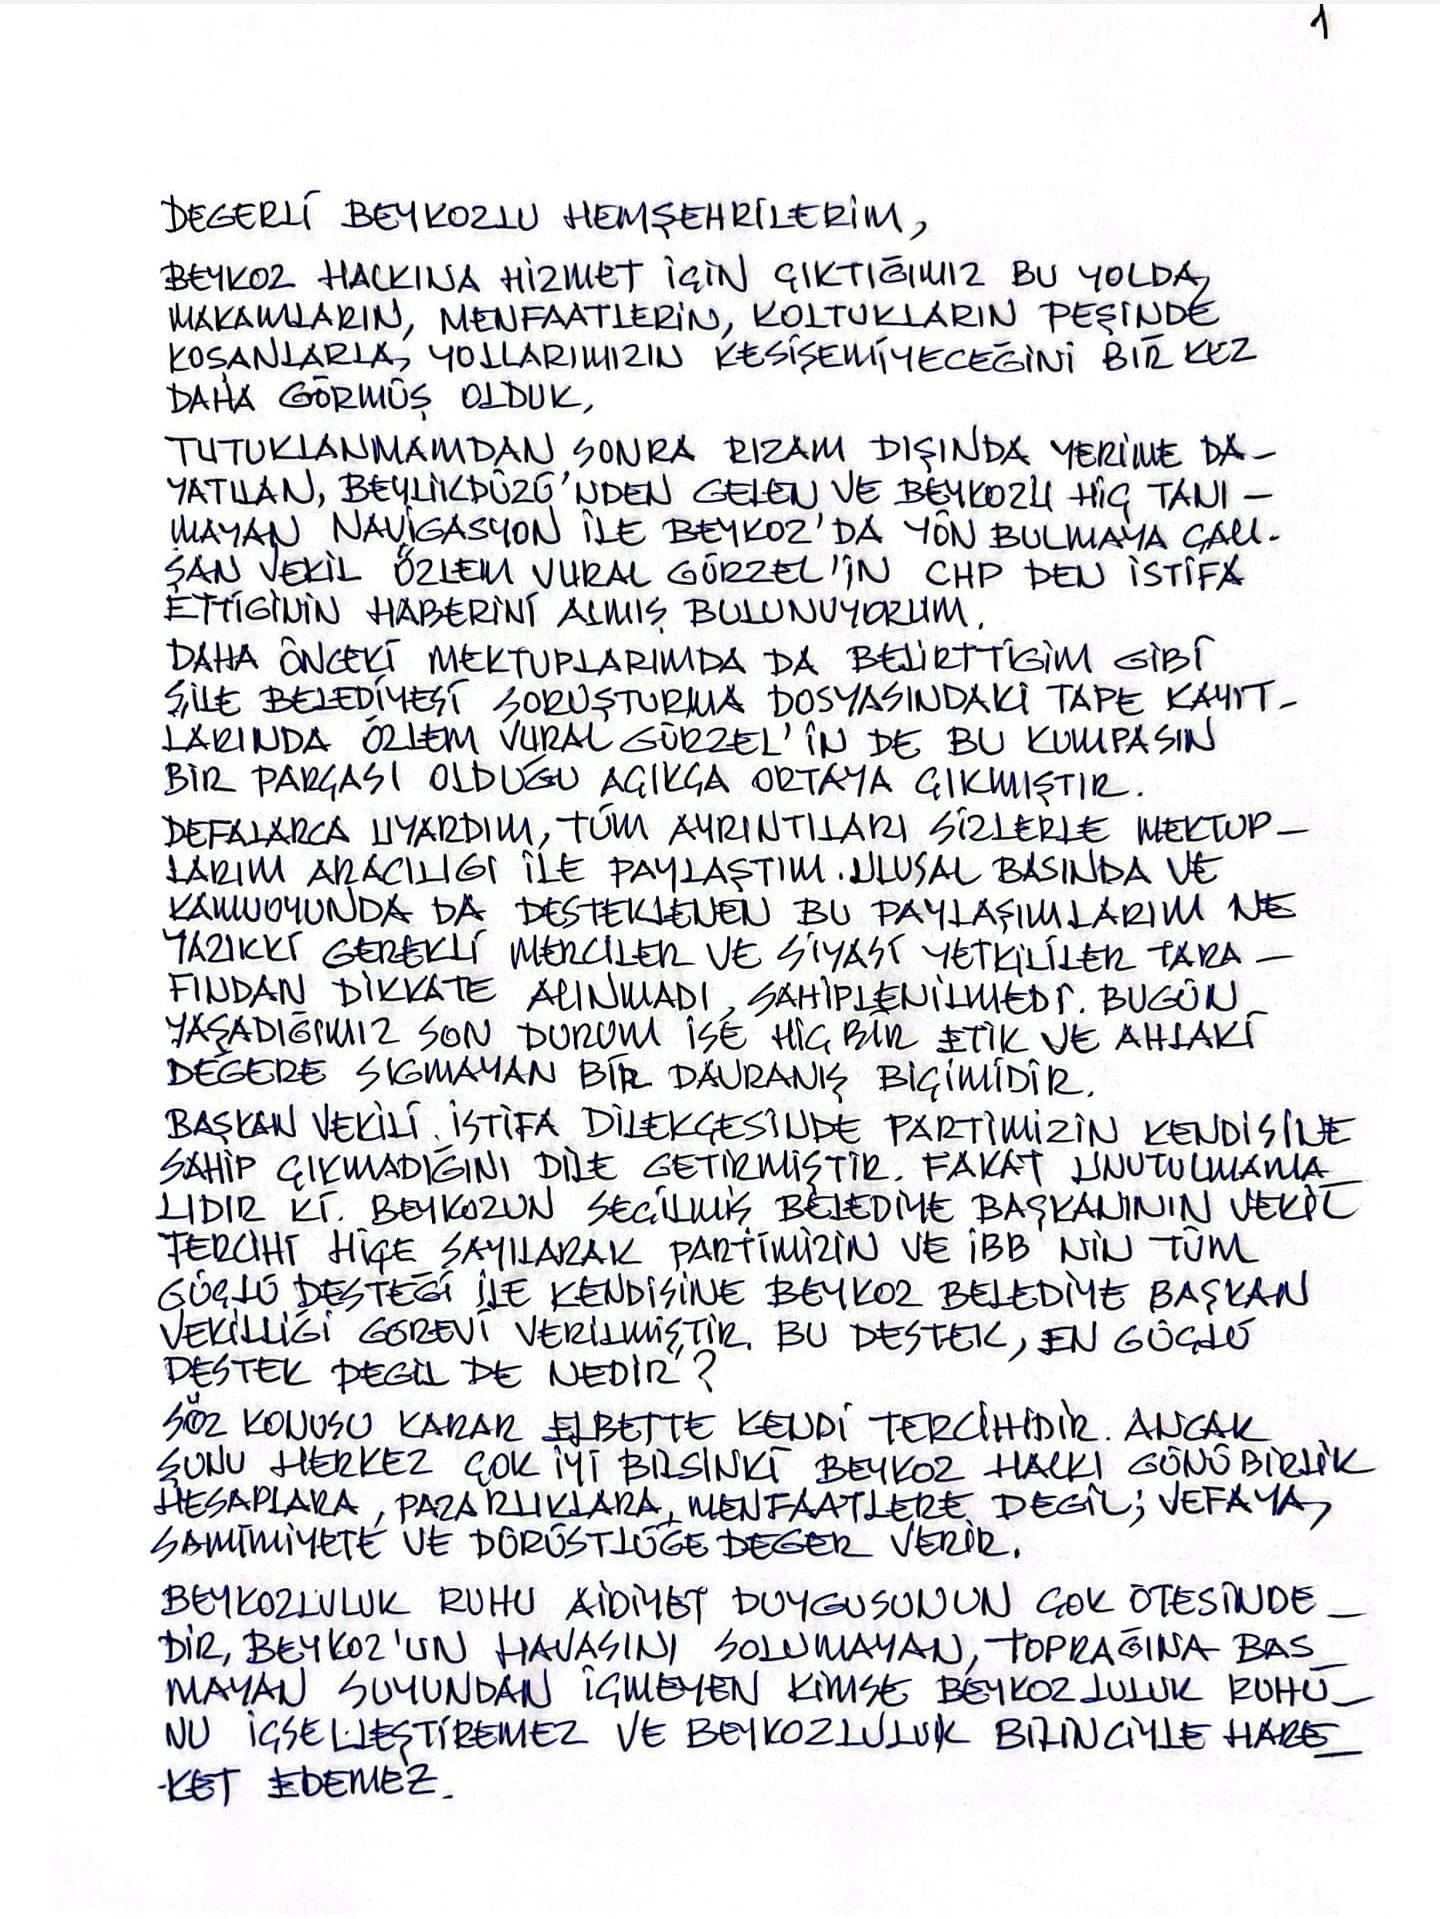 1
DEĞERLİ BEYKOZLU HEMŞEHRİLERİM,
BEYKOZ HALKINA HİZMET İÇİN ÇIKTIĞIMIZ BU YOLDA,
MAKAMLARIN, MENFAATLERİN, KOLTUKLARIN PEŞİNDE
KOŞANLARLA, YOLLARIMIZIN KESİŞEMİYECEĞİNİ BİR KEZ
DAHA GÖRMÜŞ OLDUK,
TUTUKLANMAMDAN SONRA RIZAM DIŞINDA YERİME DA-
YATILAN, BEYLİKDÜZÜ'NDEN GELEN VE BEYKOZU HİÇ TANI-
MAYAN NAVİGASYON İLE BEYKOZ'DA YÖN BULMAYA ÇALI-
ŞAN VEKİL ÖZLEM VURAL GÜRZEL'İN CHP DEN İSTİFA
ETTİGİNİN HABERİNİ ALMIŞ BULUNUYORUM.
DAHA ÖNCEKİ MEKTUPLARIMDA DA BELİRTTİGİM GİBİ
ŞİLE BELEDİYESİ SORUŞTURMA DOSYASINDAKİ TAPE KAYIT-
LARINDA ÖZLEM VURAL GÜRZEL'İN DE BU KUMPASIN
BİR PARÇASI OLDUĞU AÇIKÇA ORTAYA ÇIKMIŞTIR.
DEFALARCA UYARDIM, TÜM AYRINTILARI SİZLERLE MEKTUP-
LARIM ARACILIGI İLE PAYLAŞTIM. ULUSAL BASINDA VE
KAMUOYUNDA DA DESTEKLENEN BU PAYLAŞIMLARIM NE
YAZIKKİ GEREKLİ MERCİLER VE SİYASİ YETKİLİLER TARA-
FINDAN DİKKATE ALINMADI, SAHİPLENİLMEDİ. BUGÜN
YAŞADIĞIMIZ SON DURUM İSE HİÇ BİR ETİK VE AHLAKİ
DEĞERE SIGMAYAN BİR DAVRANIŞ BİÇİMİDİR.
BAŞKAN VEKİLİ, İSTİFA DİLEKÇESİNDE PARTİMİZİN KENDİSİNE
SAHİP ÇIKMADIĞINI DİLE GETİRMİŞTİR. FAKAT UNUTULMAMA_
LIDIR Kİ. BEYKOZUN SEÇİLMİŞ BELEDİYE BAŞKANININ VEKİL
TERCİHİ HİÇE SAYILARAK PARTİMİZİN VE İBB'NİN TÜM
GÜÇLÜ DESTEĞİ İLE KENDİSİNE BEYKOZ BELEDİYE BAŞKAN
VEKİLLİĞİ GÖREVİ VERİLMİŞTİR. BU DESTEK, EN GÜÇLÜ
DESTEK DEGİL DE NEDİR?
SÖZ KONUSU KARAR ELBETTE KENDİ TERCİHİDİR. ANCAK
ŞUNU HERKEZ ÇOK İYİ BİLSİNKİ BEYKOZ HALKI GÜNÜBİRLİK
HESAPLARA, PAZARLIKLARA, MENFAATLERE DEGİL; VEFAYA,
SAMİMİYETE VE DÜRÜSTLÜĞE DEGER VERİR.
BEYKOZLULUK RUHU AİDİYET DUYGUSUNUN ÇOK ÖTESİNDE_
DİR, BEYKOZ'UN HAVASINI SOLUMAYAN, TOPRAĞINA BAS_
MAYAN SUYUNDAN İÇMEYEN KİMSE BEYKOZLULUK RUHU_
NU İÇSELLEŞTİREMEZ VE BEYKOZLULUK BİLİNCİYLE HARE_
KET EDEMEZ.